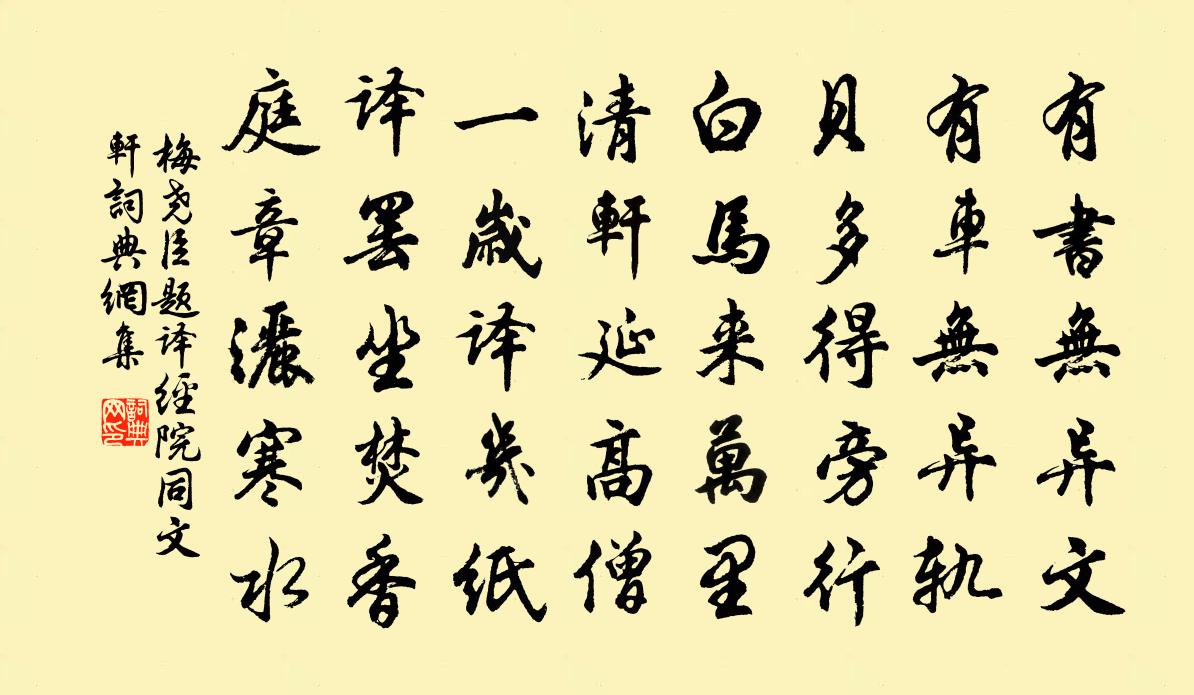 有書無异文
有車無异轨
貝多得旁行
白馬来萬里
清軒延高僧
一歲译幾纸
译罢坐焚香
庭章灑寒水
梅尧臣题译經院同文
軒詞典網集
詞典
网印